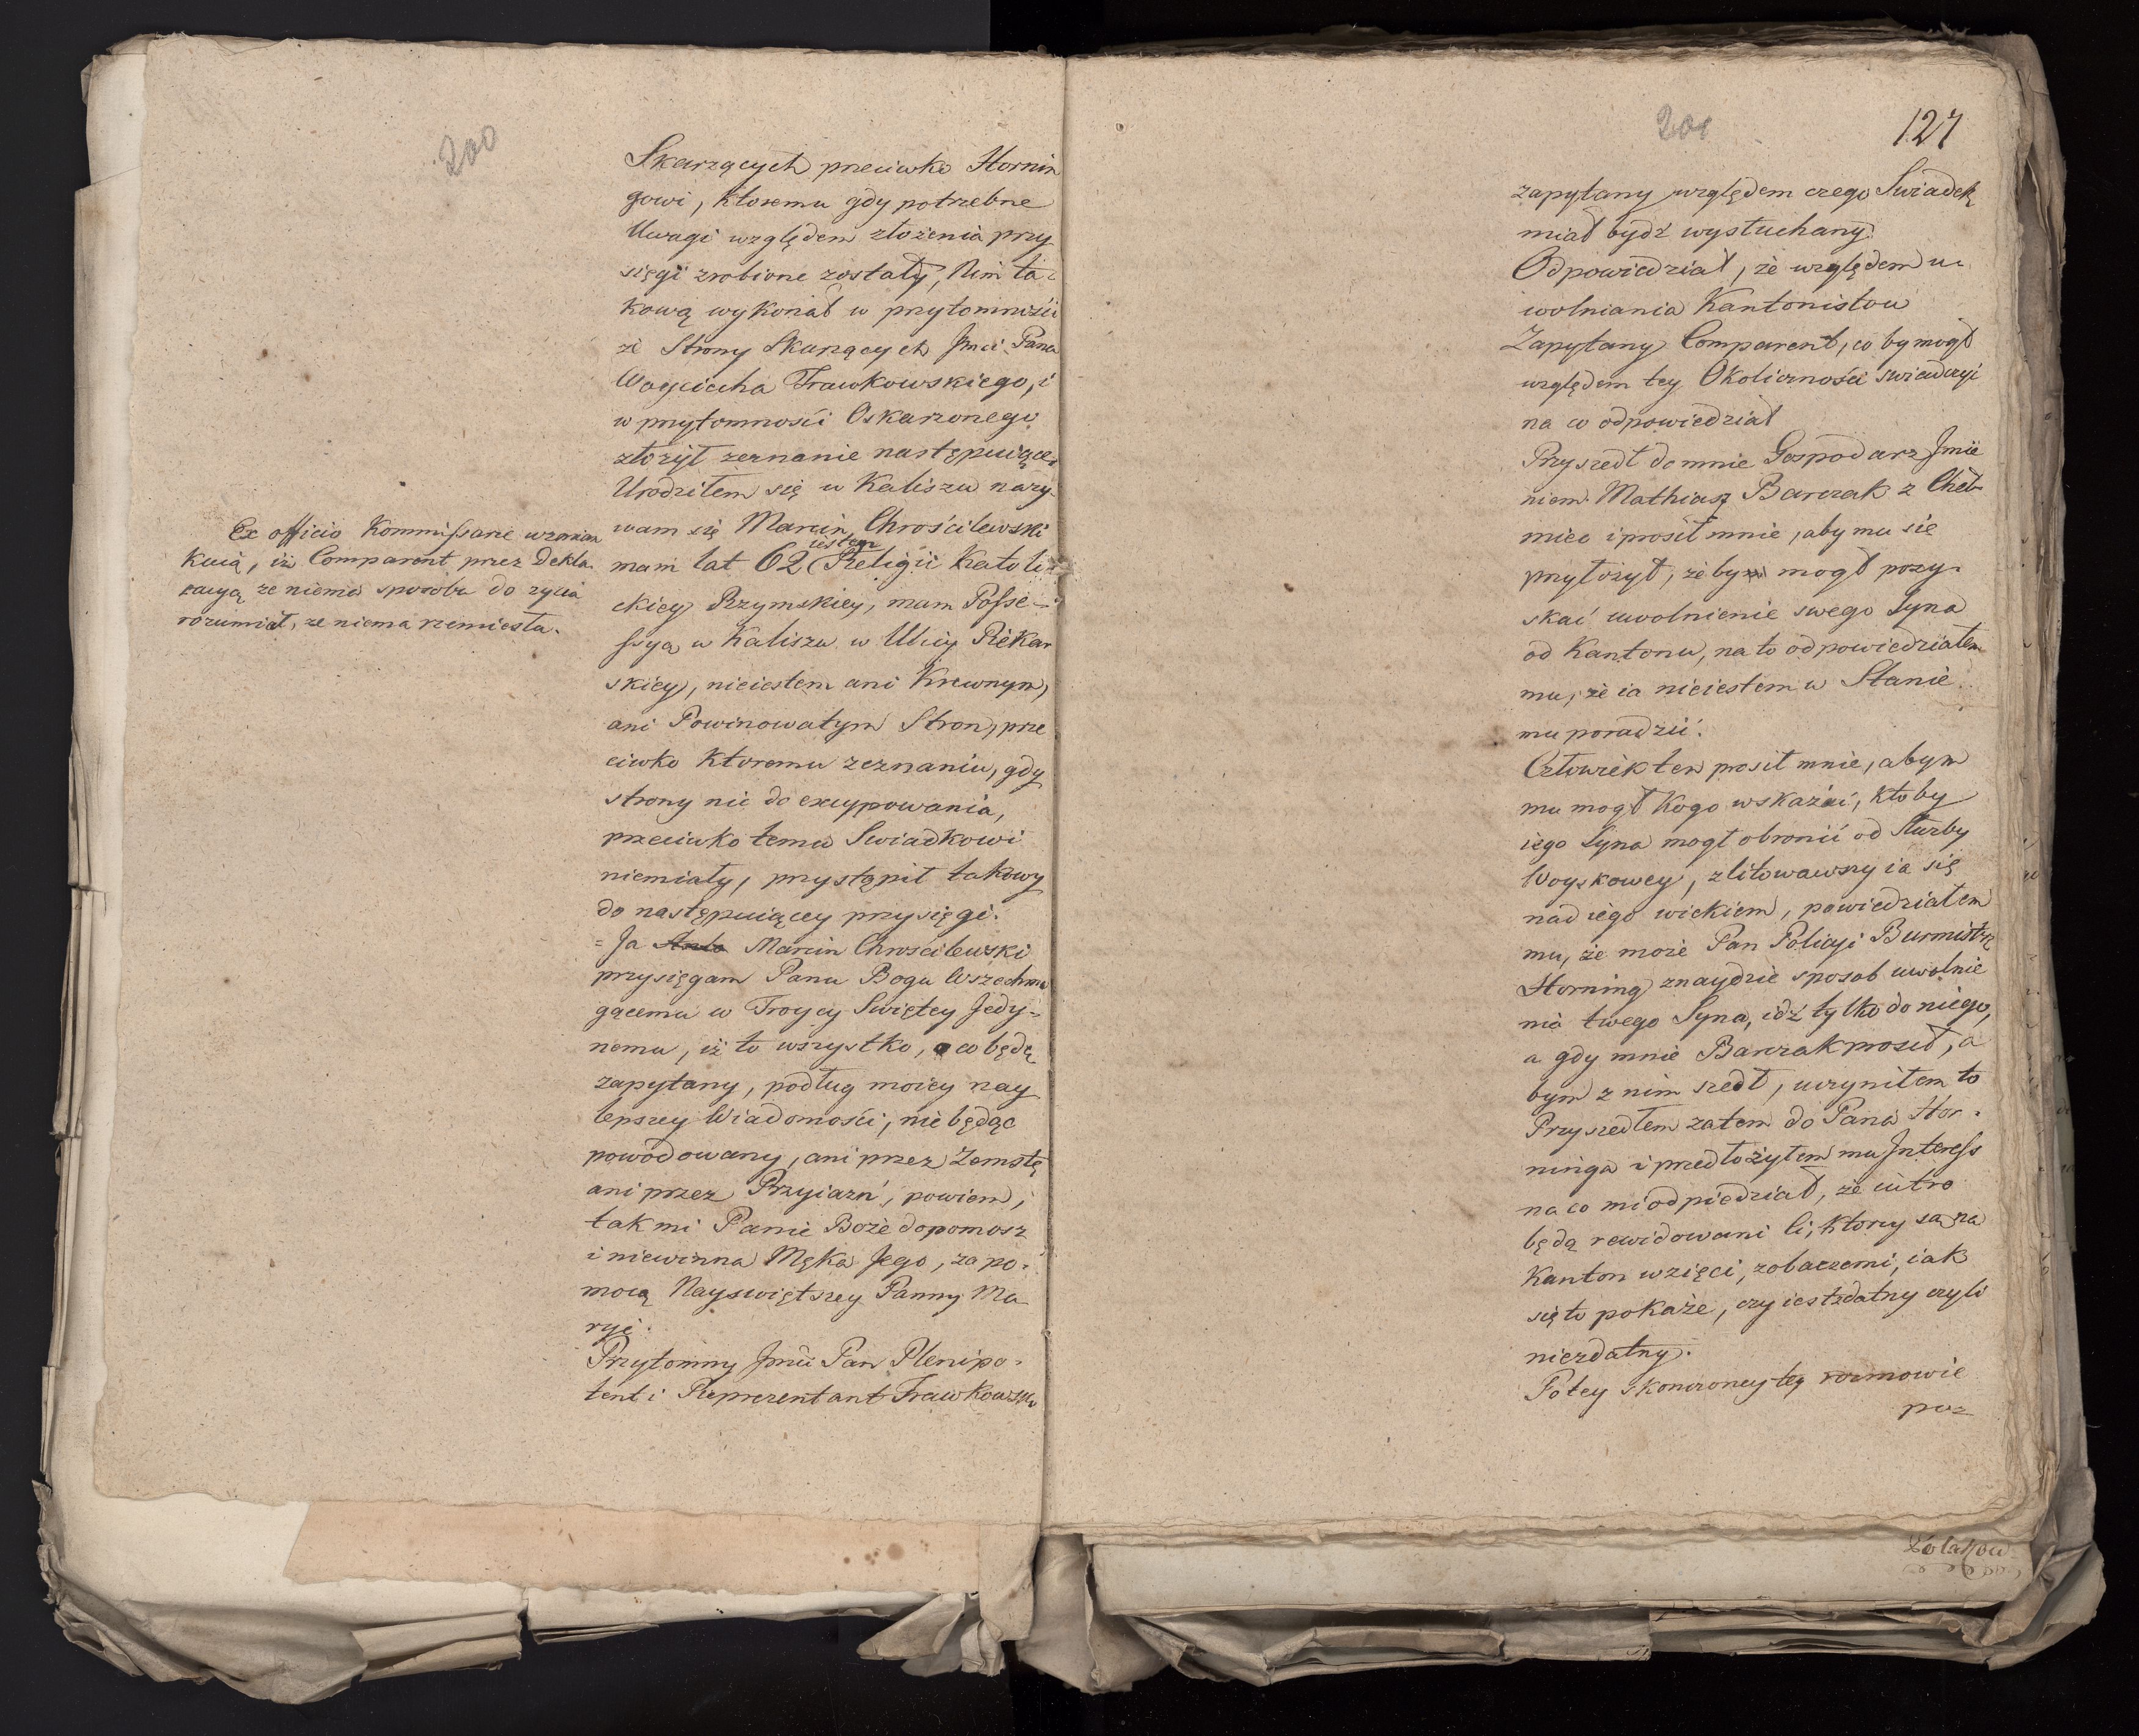 200
Skarzących przeciwko Hornin
gowi, ktoremu gdy potrzebne
Uwagi względem złożenia przy
sięgi zrobione zostały, Nim ta-
kową wykonał w przytomności
ze Strony Skarzących Jmci Pana
Woyciecha Trawkowskiego, i
w przytomności Oskarzonego
złożył zeznanie następuiące,
Urodziłem się w Kaliszu nazy-
wam się Marcin Chrościlewski
mam lat 62 iestem Religii Katoli-
ckiey Rzymskiey, mam Posse-
ssyą w Kaliszu w Ulicy Piekar
skiey, nieiestem ani Krewnym,
ani Powinowatym Stron, prze
ciwko ktoremu zeznaniu, gdy
strony nic do excypowania,
przeciwko temu Swiadkowi
niemiały, przystąpił takowy
do następuiącey przysięgi.
= Ja Anto Marcin Chroscilewski
przysięgam Panu Bogu Wszechmo
gącemu w Troycy Swiętey Jedy-
nemu, iż to wszystko, o co będę
zapytany, podług moiey nay
lepszey Wiadomości, nie będąc
powodowany, ani przez Zemstę
ani przez Przyiazń, powiem,
tak mi Panie Boże dopomosz
i niewinna Męka Jego, za po-
mocą Nayswiętszey Panny Ma
ryi.
Przytomny Jmci Pan Plenipo-
tent i Reprezentant Trawkowski
Ex officio Kommissarze wzmian
kuią, iż Comparent przez Dekla-
racyą ze niema sposobu do zycia
rozumiał, ze niema rzemiesła.
201
127
zapytany względem czego Swiadek
miał bydź wysłuchany.
Odpowiedział, że względem u-
wolniania Kantonistow
Zapytany Comparent, co by mogł
względem tey Okoliczności swiadczyi
na co odpowiedział
Przyszedł do mnie Gospodarz Jmie
niem Mathiasz Barczak z Cheł-
miec i prosił mnie, aby mu się
przyłożył, żeby mogł pozy-
skać uwolnienie swego Syna
od Kantonu, na to odpowiedziałem
mu, że ia nieiestem w Stanie
mu poradzić.
Człowiek ten prosił mnie, abym
mu mogł kogo wskazać, ktoby
iego Syna mogł obronić od Służby
Woyskowey, zlitowawszy ia się
nad iego wiekiem, powiedziałem
mu, że może Pan Policyi Burmistrz
Horning znaydzie sposob uwolnie
nia twego Syna, idź tylko do niego,
a gdy mnie Barczak prosił, a
bym z nim szedł, uczyniłem to
Przyszedłem zatem do Pana Hor-
ninga i przedłożyłem mu Interess
na co mi odpiedział, że iutro
będą rewidowani Ci, ktorzy są na
Kanton wzięci, zobaczemi, iak
się to pokaże, czy iest zdatny czyli
niezdatny.
Po tey skonczoney tey rozmowie
poz